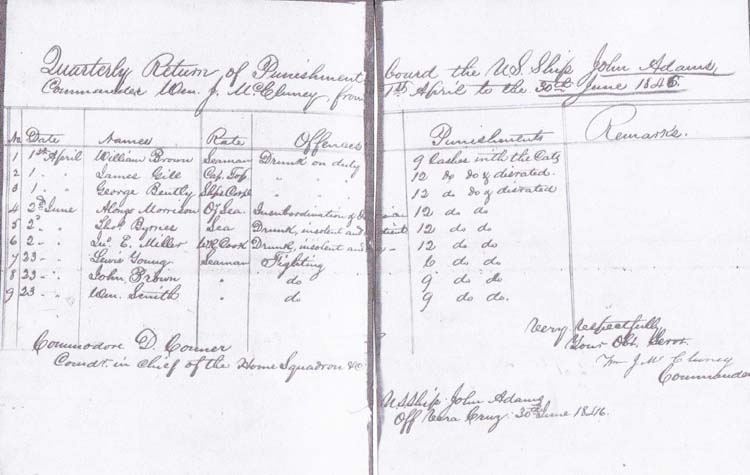 Quarterly Return of Punishment board the US Ship John Adams
Commander Wm. J. McCluney from 1st April to the 30th June 1846.
No Date Names Rate Offences Punishments Remarks.
1 1st April William Brown Seaman Drunk on duty 9 Lashes with the Cats
2 1. " James Gill Cap. Top " " 12 do do & disrated
3 1. " George Bently Ships Corpl " " 12 do do & disrated
4 2d June Alonzo Morrison Oy Sea. Insubordination & 12 do do
5 2" " Thos. Byrnes Sea Drunk, insolent and 12 do do
6 2 " Jno. E. Miller WR Cook Drunk, insolent and 12 do do
7 23 " Lewis Young Seaman Fighting 6 do do
8 23 " John Brown " do 9 do do
9 23 " Wm. Smith " do 9 do do.
Very respectfully
Your Obt. Servt.
Wm J. McCluney
Commander
Commodore D Conner
Comdr. in Chief of the Home Squadron &c
US Ship John Adams
Off Vera Cruz 30th June 1846.